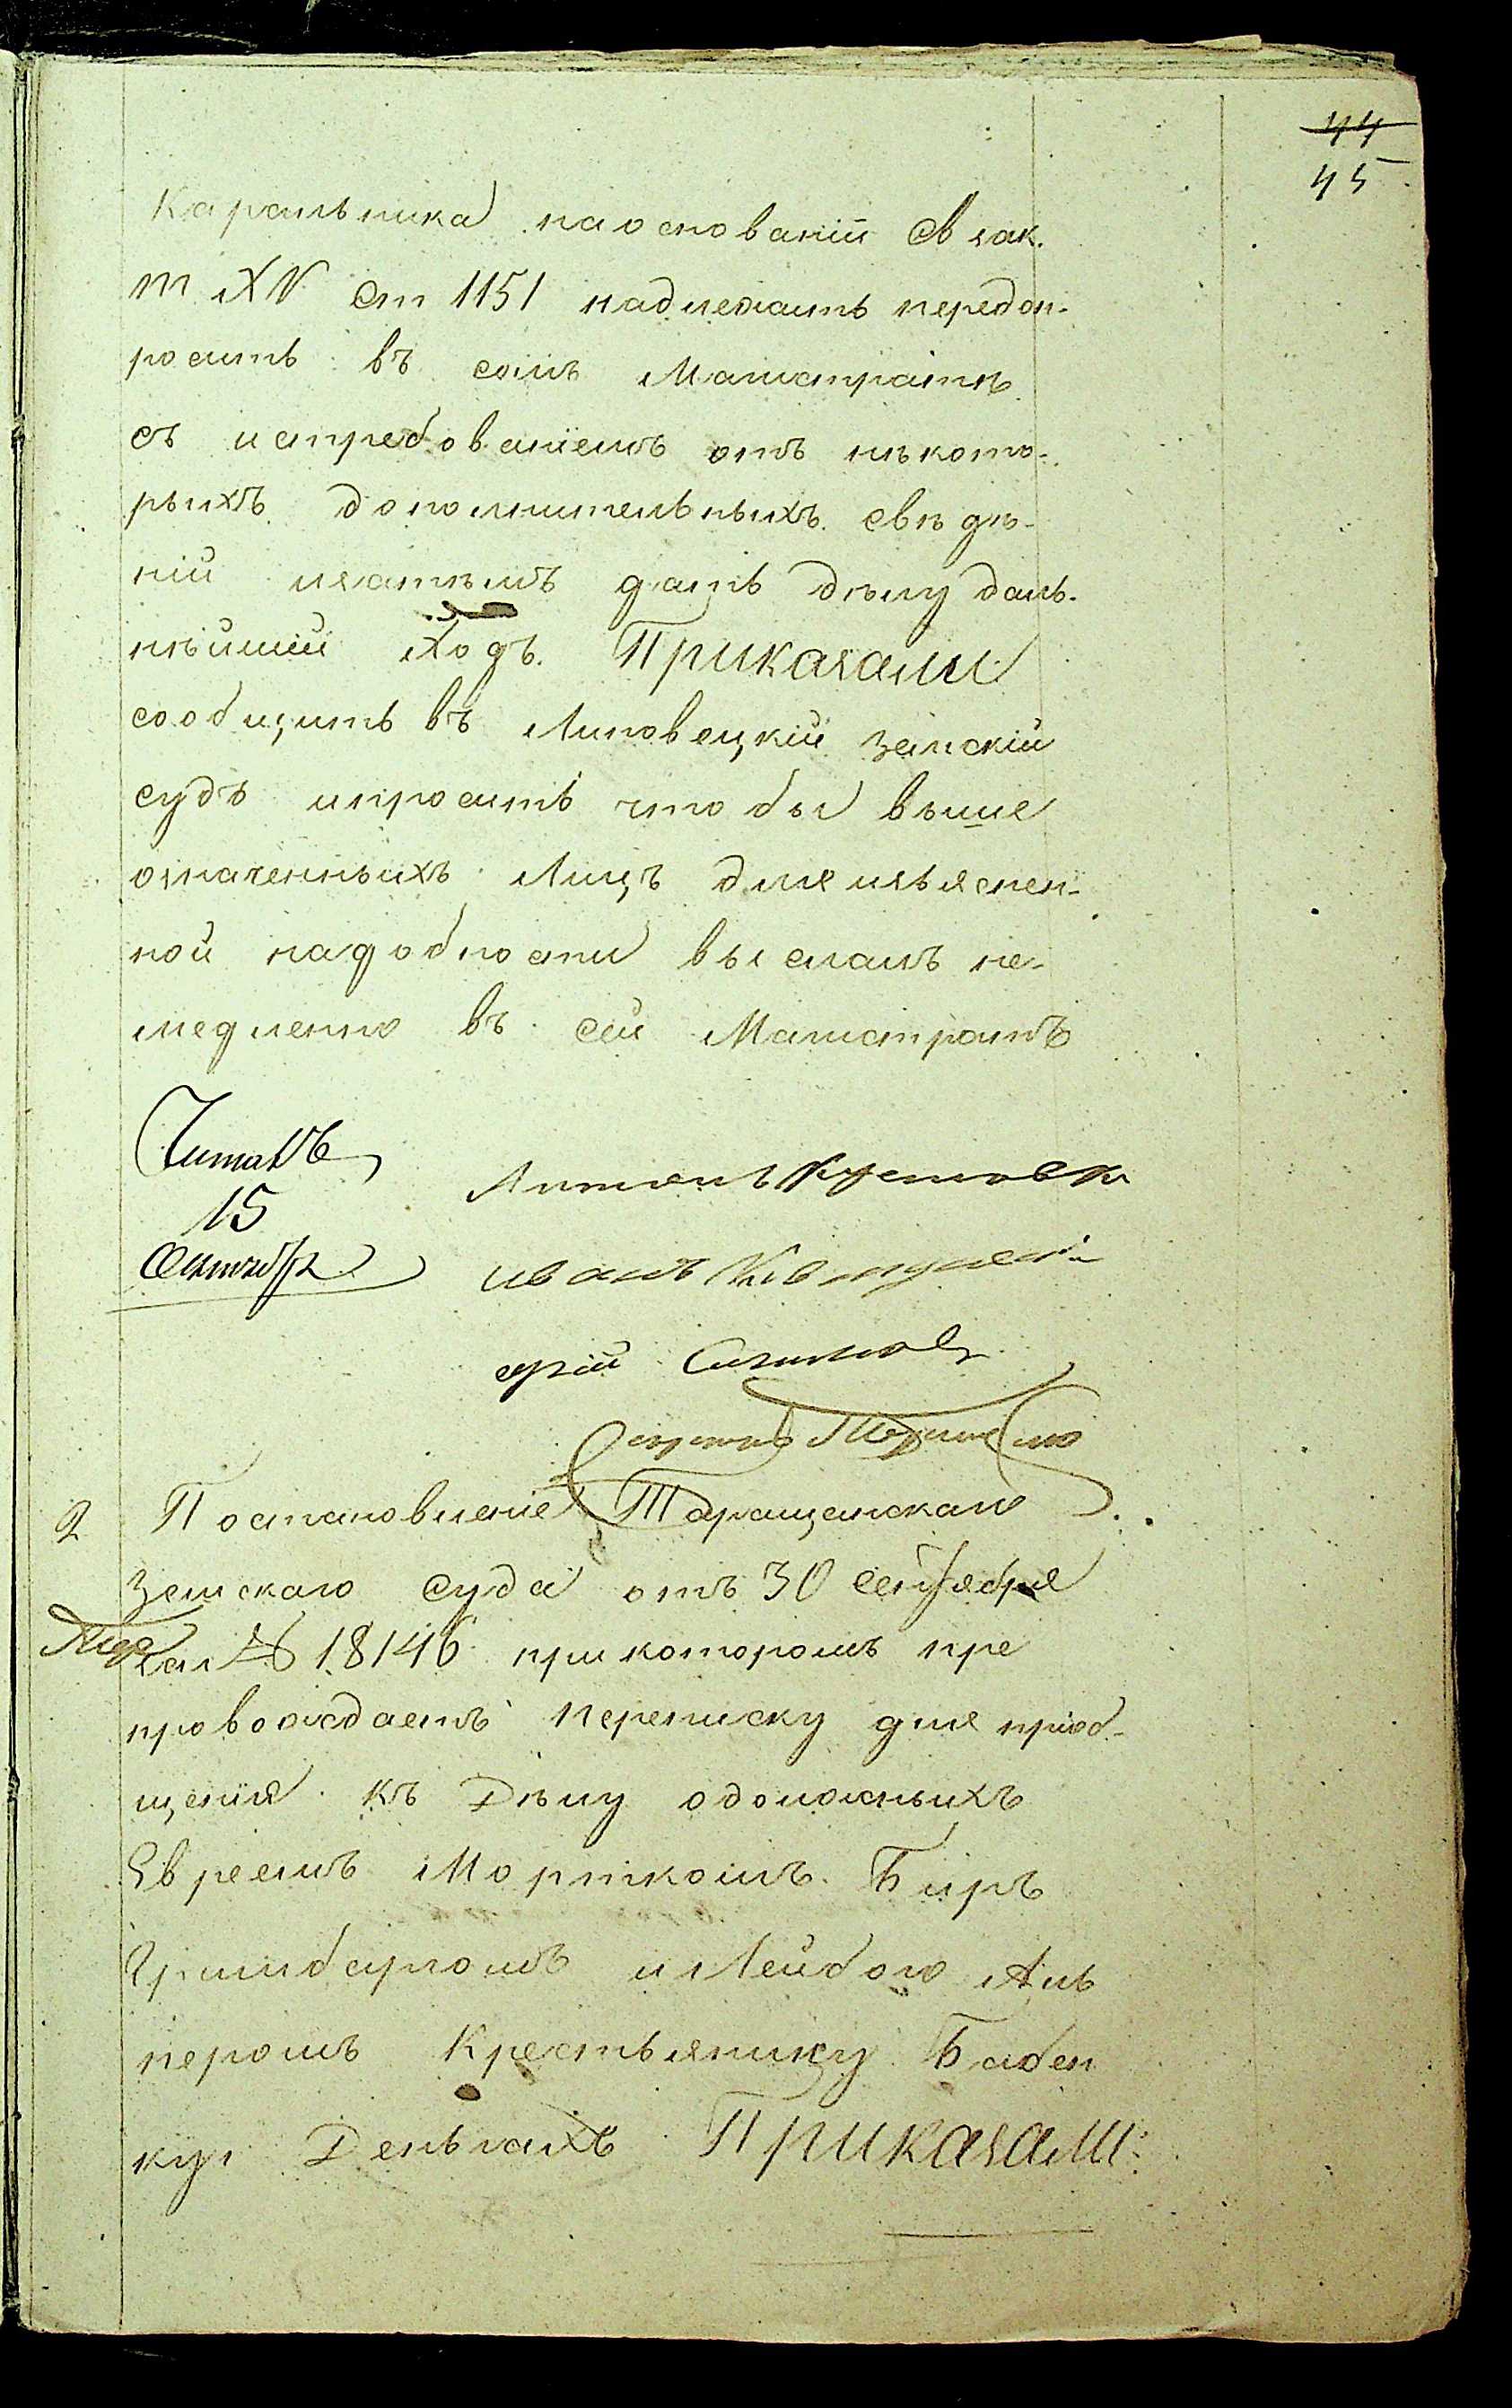 44
45
Каральника на основаніи Св Зак.
т XV ст 1151 надлежитъ передоп-
росить въ семъ Магистратѣ
съ истребованіемъ отъ нѣкото-
рыхъ дополнительныхъ свѣдѣ-
ній изатѣмъ дать дѣлу даль-
нѣйшій Ходъ. Приказали
сообщить въ Липовецкій Земскій
судъ ипросить что бы выше
означенныхъ Лицъ для изъяснен-
ной надобности выслалъ не-
медленно въ сей Магистратъ
Читалъ
15
Октября
Иванъ
2 Постановленіе Таращанскаго
Земскаго суда отъ 30 сентября
за № 18146 при которомъ пре
провождаетъ переписку для пріоб-
щенія къ Дѣлу одолжныхъ
Евреемъ Моршкомъ Биръ
Гринбергомъ и Лейбою Аль
перомъ Крестьянину Бабен
ку Деньгахъ Приказали: